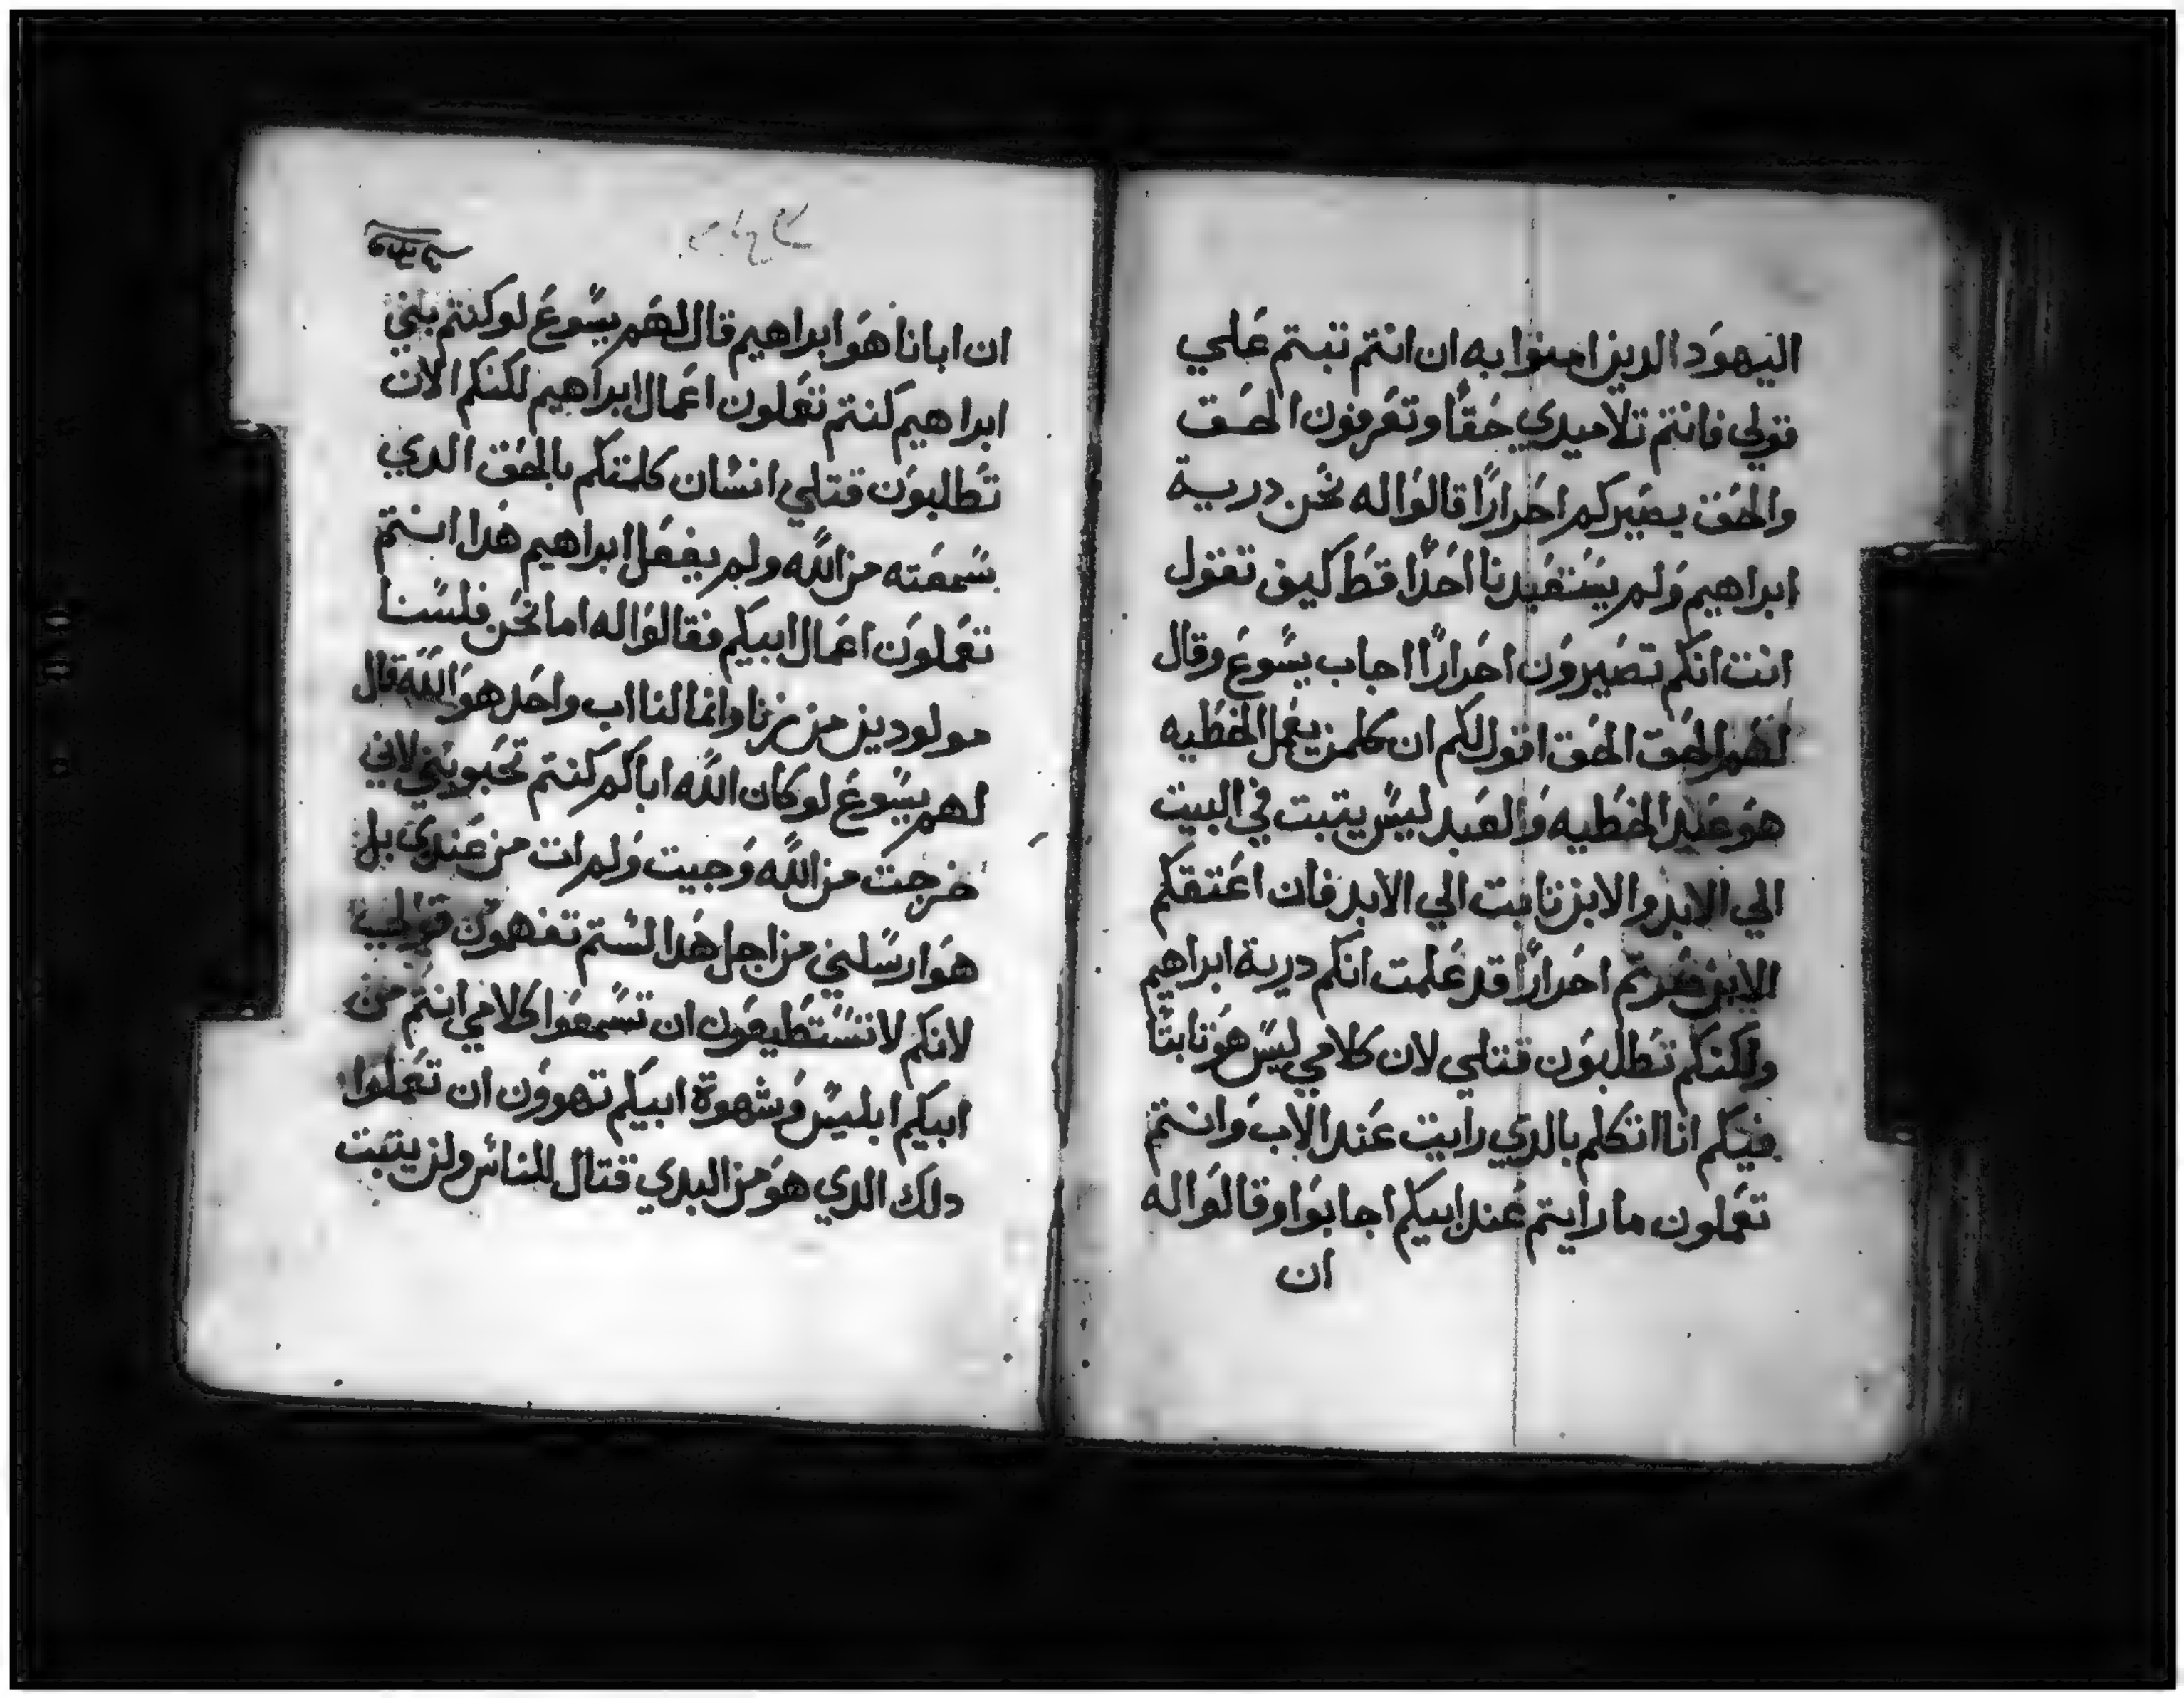 اليهود الدين امنوا به ان انتم تبتم علي
قولي فانتم تلاميدي حقًا وتعرفون الحق
والحق يصيركم احرارًا قالوا له نحن درية
ابراهيم ولم يستعبدنا احدًا قط كيف تقول
انت انكم تصيرون احرارًا اجاب يسوع وقال
لهم الحق الحق اقول لكم ان كلمن يعمل الخطيه
هو عبد الخطيه والعبد ليس يتبت في البيت
الي الابد والابن تابت الي الابد فان اعتقكم
الابن صرتم احرارًا قد علمت انكم درية ابراهيم
ولكنكم تطلبون قتلي لان كلامي ليس هو تابتًا
فيكم انا اتكلم بالدي رايت عند الاب وانتم
تعملون ما رايتم عند ابيكم اجابوا وقالوا له
ان
ان ابانا هو ابراهيم قال لهم يسوع لو كنتم بني
ابراهيم كنتم تعملون اعمال ابراهيم لكنكم الان
تطلبون قتلي انسان كلمتكم بالحق الدي
سمعته من الله ولم يفعل ابراهيم هدا انتم
تعملون اعمال ابيكم فقالوا له اما نحن فلسنا
مولودين من زنا وانما لنا اب واحد هو الله قال
لهم يسوع لو كان الله اباكم كنتم تحبوني لاني
خرجت من الله وجيت ولم ات من عندي بل
هو ارسلني من اجل هدا لستم تفهمون
لانكم لا تستطيعون ان تسمعوا كلامي انتم من
ابيكم ابليس وشهوة ابيكم تهوون ان تعملوا
دلك الدي هو من البدي قتال للناس ولن يتبت